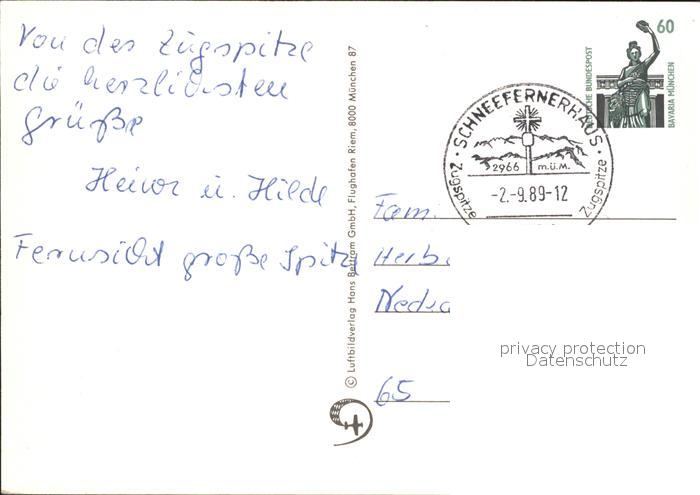 Von der Zugspitze
die herzlichsten
Grüße
Heinz u. Hilde
Fernsicht große Spitze
© Luftbildverlag Hans Bertram GmbH, Flughafen Riem, 8000 München 87
60
DEUTSCHE BUNDESPOST
BAVARIA MÜNCHEN
· SCHNEEFERNERHAUS ·
2966 m.ü.M.
Zugspitze
-2.-9.89-12
Zugspitze
Fam.
Herb
Neds
65
privacy protection
Datenschutz